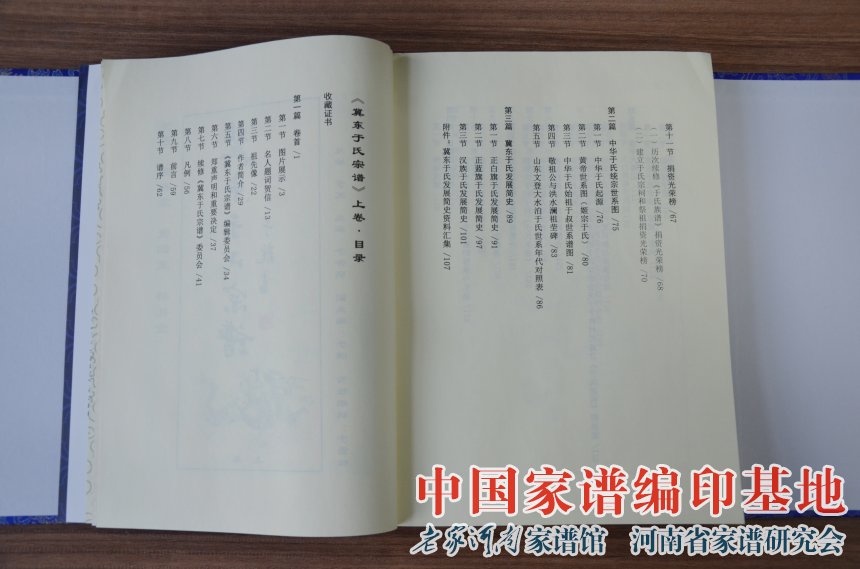 《冀东于氏宗谱》上卷·目录
收藏证书
第一篇 卷首 /1
第一节 图片展示 /3
第二节 名人题词贺信 /13
第三节 祖先像 /22
第四节 作者简介 /29
第五节 《冀东于氏宗谱》编辑委员会 /34
第六节 郑重声明和重要决定 /37
第七节 续修《冀东于氏宗谱》委员会 /41
第八节 凡例 /56
第九节 前言 /59
第十节 谱序 /62
第十一节 捐资光荣榜 /67
（一）历次续修《于氏族谱》捐资光荣榜 /68
（二）建立于氏宗祠和祭祖捐资光荣榜 /70
第二篇 中华于氏统宗世系图 /75
第一节 中华于氏起源 /76
第二节 黄帝世系图（姬宗于氏） /80
第三节 中华于氏始祖于叔世系谱图 /81
第四节 敬祖公与洪水澜祖茔碑 /83
第五节 山东文登大水泊于氏世系年代对照表 /86
第三篇 冀东于氏发展简史 /89
第一节 正白旗于氏发展简史 /91
第二节 正蓝旗于氏发展简史 /97
第三节 汉族于氏发展简史 /101
附件：冀东于氏发展简史资料汇集 /107
中国家谱编印基地
老家河南家谱馆 河南省家谱研究会